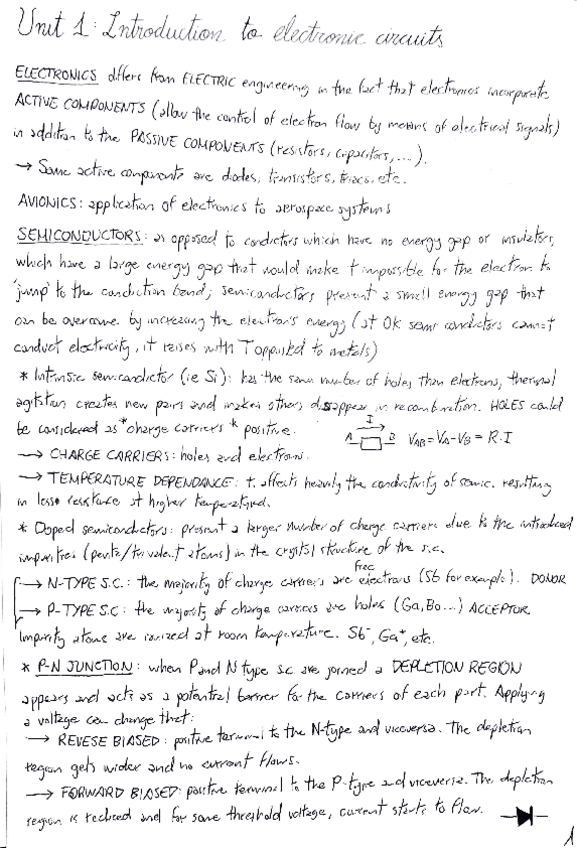 Unit 1: Introduction to electronic circuits
ELECTRONICS differs from ELECTRIC engineering in the fact that electronics incorporate
ACTIVE COMPONENTS (allow the control of electron flow by means of electrical signals)
in addition to the PASSIVE COMPONENTS (resistors, capacitors, ...).
→ Some active components are diodes, transistors, triacs, etc.
AVIONICS: application of electronics to aerospace systems
SEMICONDUCTORS: as opposed to conductors which have no energy gap or insulators,
which have a large energy gap that would make it impossible for the electron to
'jump' to the conduction band; semiconductors present a small energy gap that
can be overcome by increasing the electron's energy (at 0K semi conductors cannot
conduct electricity, it raises with T opposited to metals)
* Intrinsic semiconductor (ie Si): has the same number of holes than electrons, thermal
agitation creates new pairs and makes others disappear in recombination. HOLES could
be considered as *charge carriers* positive.
I
A B V_AB = V_A - V_B = R·I
→ CHARGE CARRIERS: holes and electrons.
→ TEMPERATURE DEPENDANCE: t. affects heavily the conductivity of semic. resulting
in less resistance at higher
* Doped semiconductors: present a larger number of charge carriers due to the introduced
impurities (penta/trivalent atoms) in the crystal structure of the s.c.
→ N-TYPE S.C.: the majority of charge carriers are free electrons (Sb for example). DONOR
→ P-TYPE S.C.: the majority of charge carriers are holes (Ga, Bo...) ACCEPTOR
Impurity atoms are ionized at room temperature. Sb⁻, Ga⁺, etc.
* P-N JUNCTION: when P and N type s.c. are joined a DEPLETION REGION
appears and acts as a potential barrier for the carriers of each part. Applying
a voltage can change that:
→ REVESE BIASED: positive terminal to the N-type and viceversa. The depletion
region gets wider and no current flows.
→ FORWARD BIASED: positive terminal to the P-type and viceversa. The depletion
region is reduced and for some threshold voltage, current starts to flow.
1